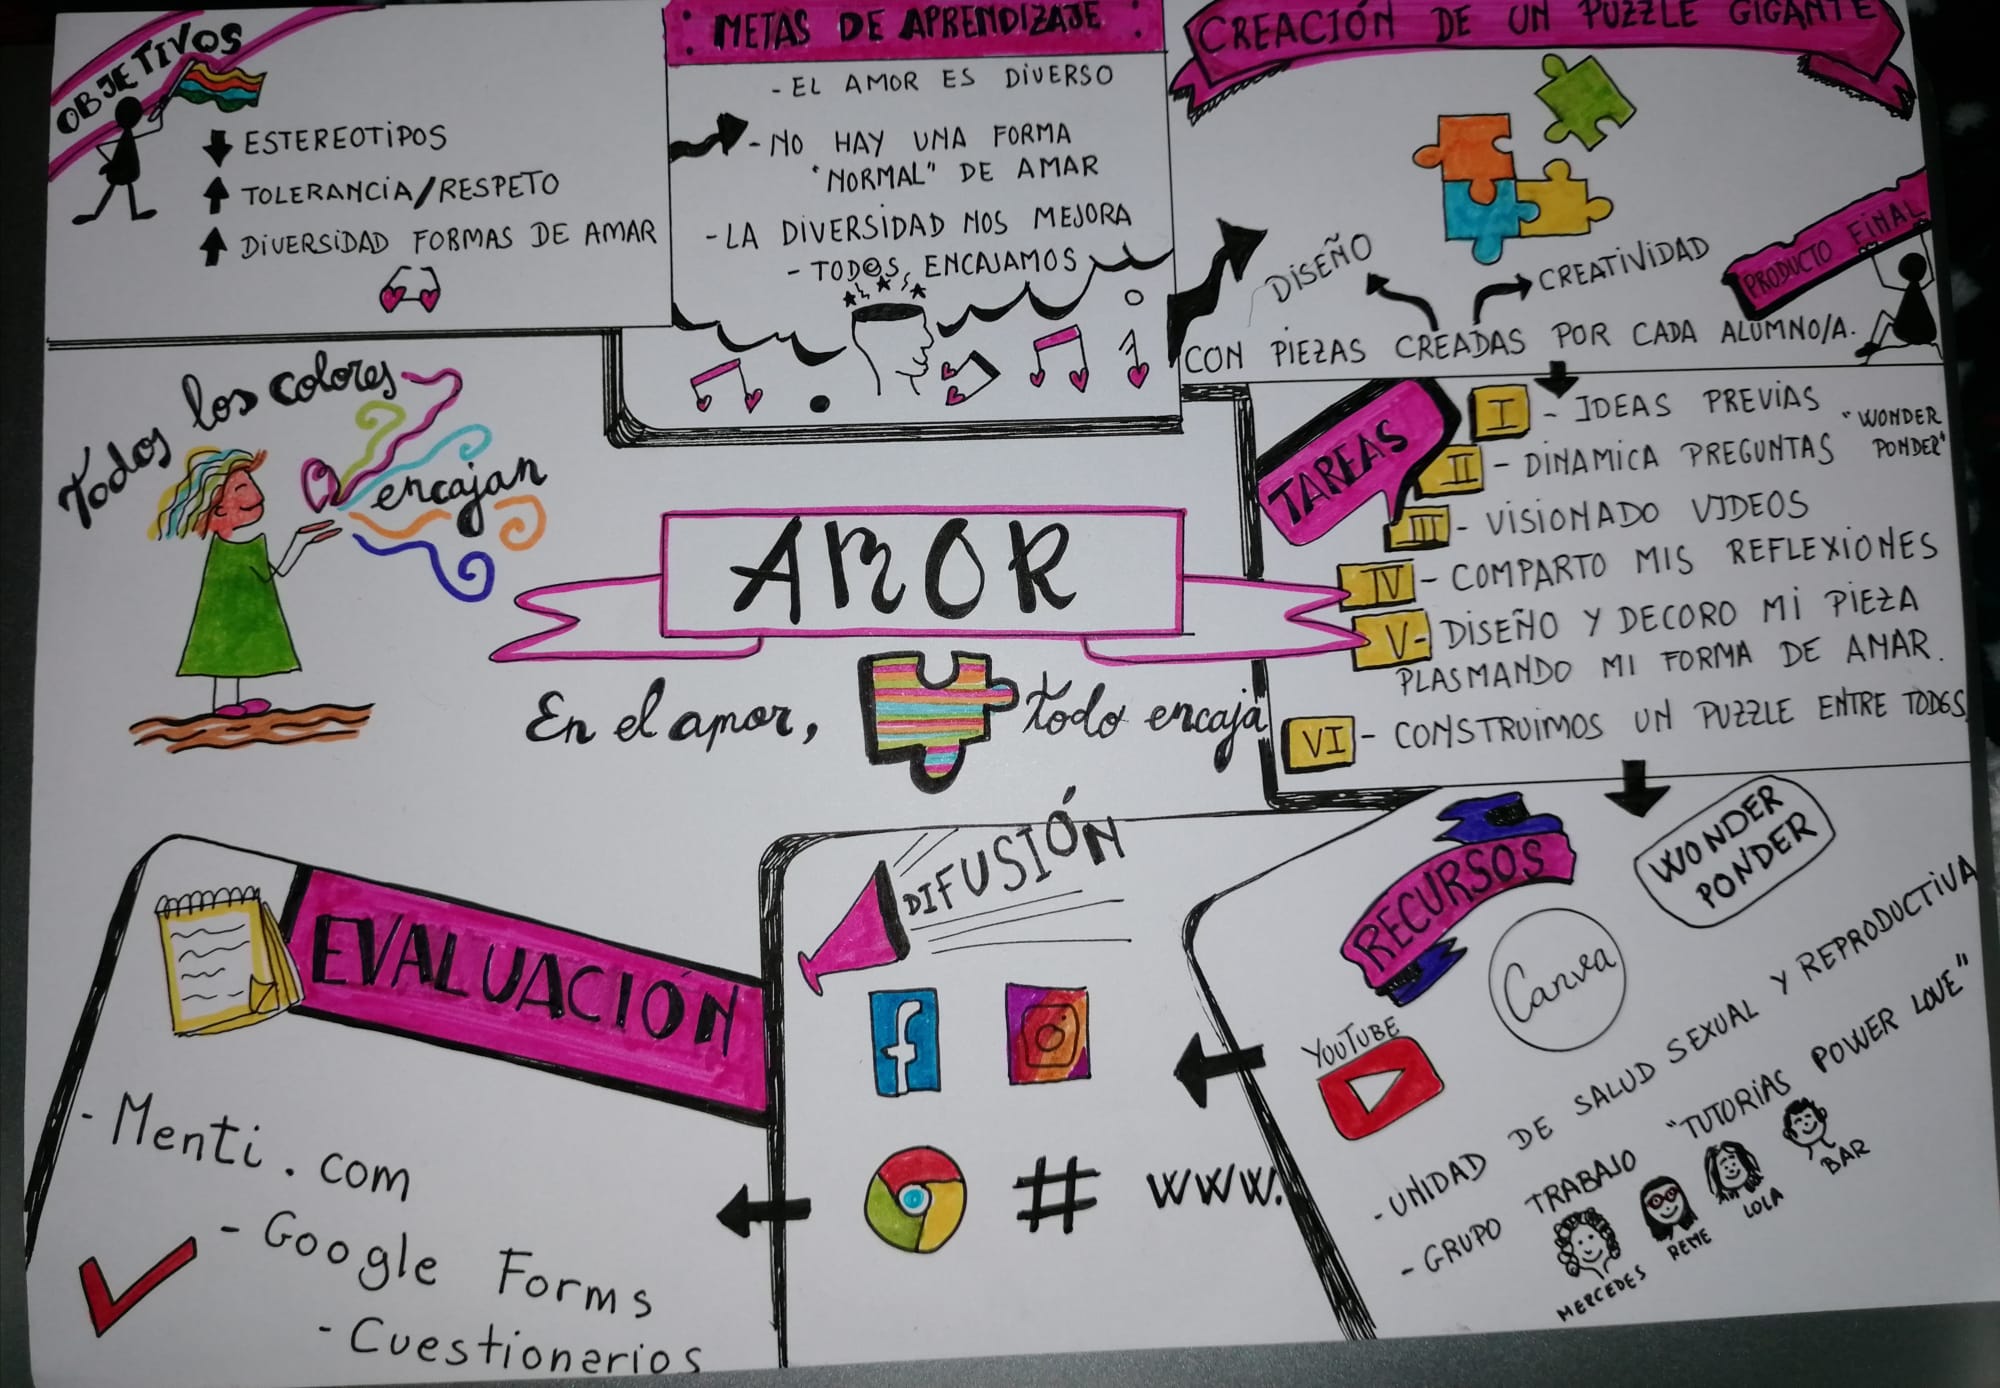 OBJETIVOS
ESTEREOTIPOS
TOLERANCIA/RESPETO
DIVERSIDAD FORMAS DE AMAR
METAS DE APRENDIZAJE
- EL AMOR ES DIVERSO
- NO HAY UNA FORMA
"NORMAL" DE AMAR
- LA DIVERSIDAD NOS MEJORA
- TOD@S ENCAJAMOS
CREACIÓN DE UN PUZZLE GIGANTE
DISEÑO
CREATIVIDAD
PRODUCTO FINAL
CON PIEZAS CREADAS POR CADA ALUMNO/A.
Todos los colores
encajan
AMOR
En el amor, todo encaja
TAREAS
I - IDEAS PREVIAS
II - DINAMICA PREGUNTAS "WONDER
PONDER"
III - VISIONADO VIDEOS
IV - COMPARTO MIS REFLEXIONES
V - DISEÑO Y DECORO MI PIEZA
PLASMANDO MI FORMA DE AMAR.
VI - CONSTRUIMOS UN PUZZLE ENTRE TOD@S.
EVALUACIÓN
- Menti.com
- Google Forms
- Cuestionarios
DIFUSIÓN
f
#
www.
RECURSOS
WONDER
PONDER
Canva
YOUTUBE
- UNIDAD DE SALUD SEXUAL Y REPRODUCTIVA
- GRUPO TRABAJO "TUTORIAS POWER LOVE"
MERCEDES
REME
LOLA
BAR